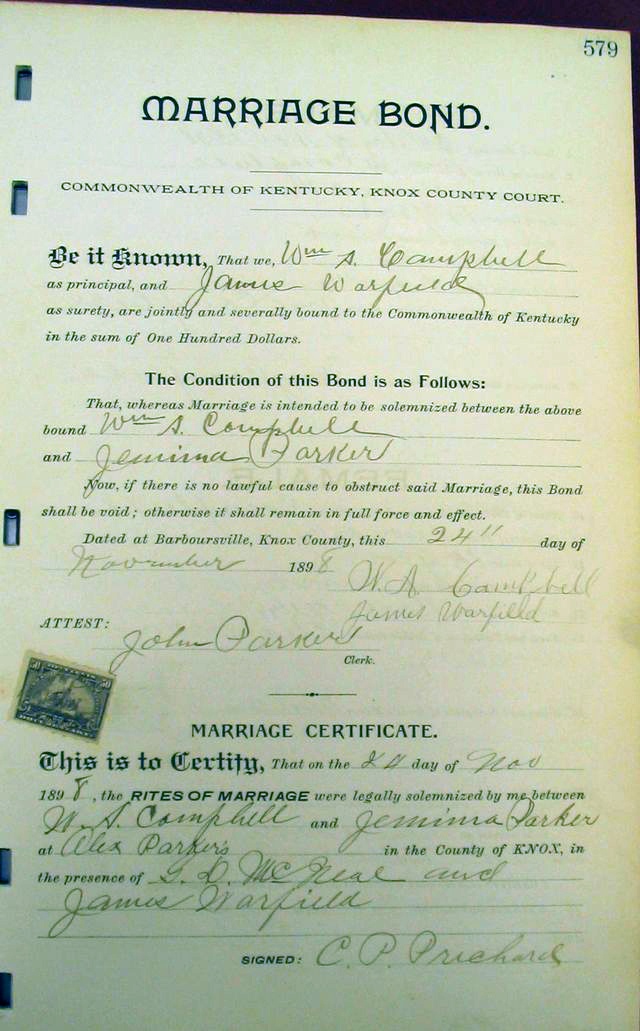 579
MARRIAGE BOND.
COMMONWEALTH OF KENTUCKY, KNOX COUNTY COURT.
Be it Known, That we, Wm S. Campbell
as principal, and James Warfield
as surety, are jointly and severally bound to the Commonwealth of Kentucky
in the sum of One Hundred Dollars.
The Condition of this Bond is as Follows:
That, whereas Marriage is intended to be solemnized between the above
bound Wm S. Campbell
and Jemima Parker
Now, if there is no lawful cause to obstruct said Marriage, this Bond
shall be void; otherwise it shall remain in full force and effect.
Dated at Barboursville, Knox County, this 24" day of
November 1898
W. S. Campbell
James Warfield
ATTEST:
John Parker
Clerk.
50 50
MARRIAGE CERTIFICATE.
This is to Certify, That on the 24 day of Nov
1898, the RITES OF MARRIAGE were legally solemnized by me between
W. S. Campbell and Jemima Parker
at Alex Parkers in the County of KNOX, in
the presence of G. D. McNeal and
James Warfield
SIGNED: C. P. Prichard